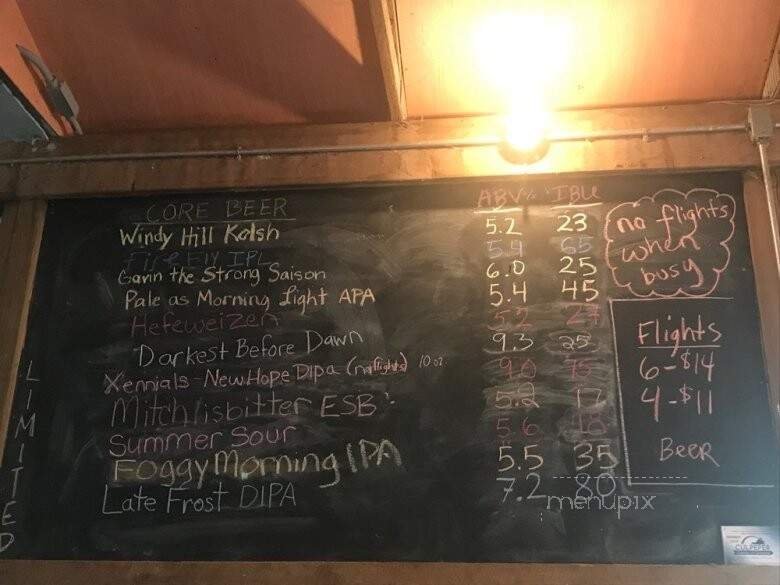 CORE BEER ABV% IBU
Windy Hill Kolsh 5.2 23
Fire Fly IPL 5.4 65
Gavin the Strong Saison 6.0 25
Pale as Morning Light APA 5.4 45
Hefeweizen 5.2
Darkest Before Dawn 9.3 25
Xennials - New Hope Dipa (no flights) 10 oz. 9.0 75
Mitchlisbitter ESB 5.2 17
Summer Sour 5.6
Foggy Morning IPA 5.5 35
Late Frost DIPA 7.2 80
LIMITED
no flights
when
busy
Flights
6-$14
4-$11
Beer
menupix
CULPEPER